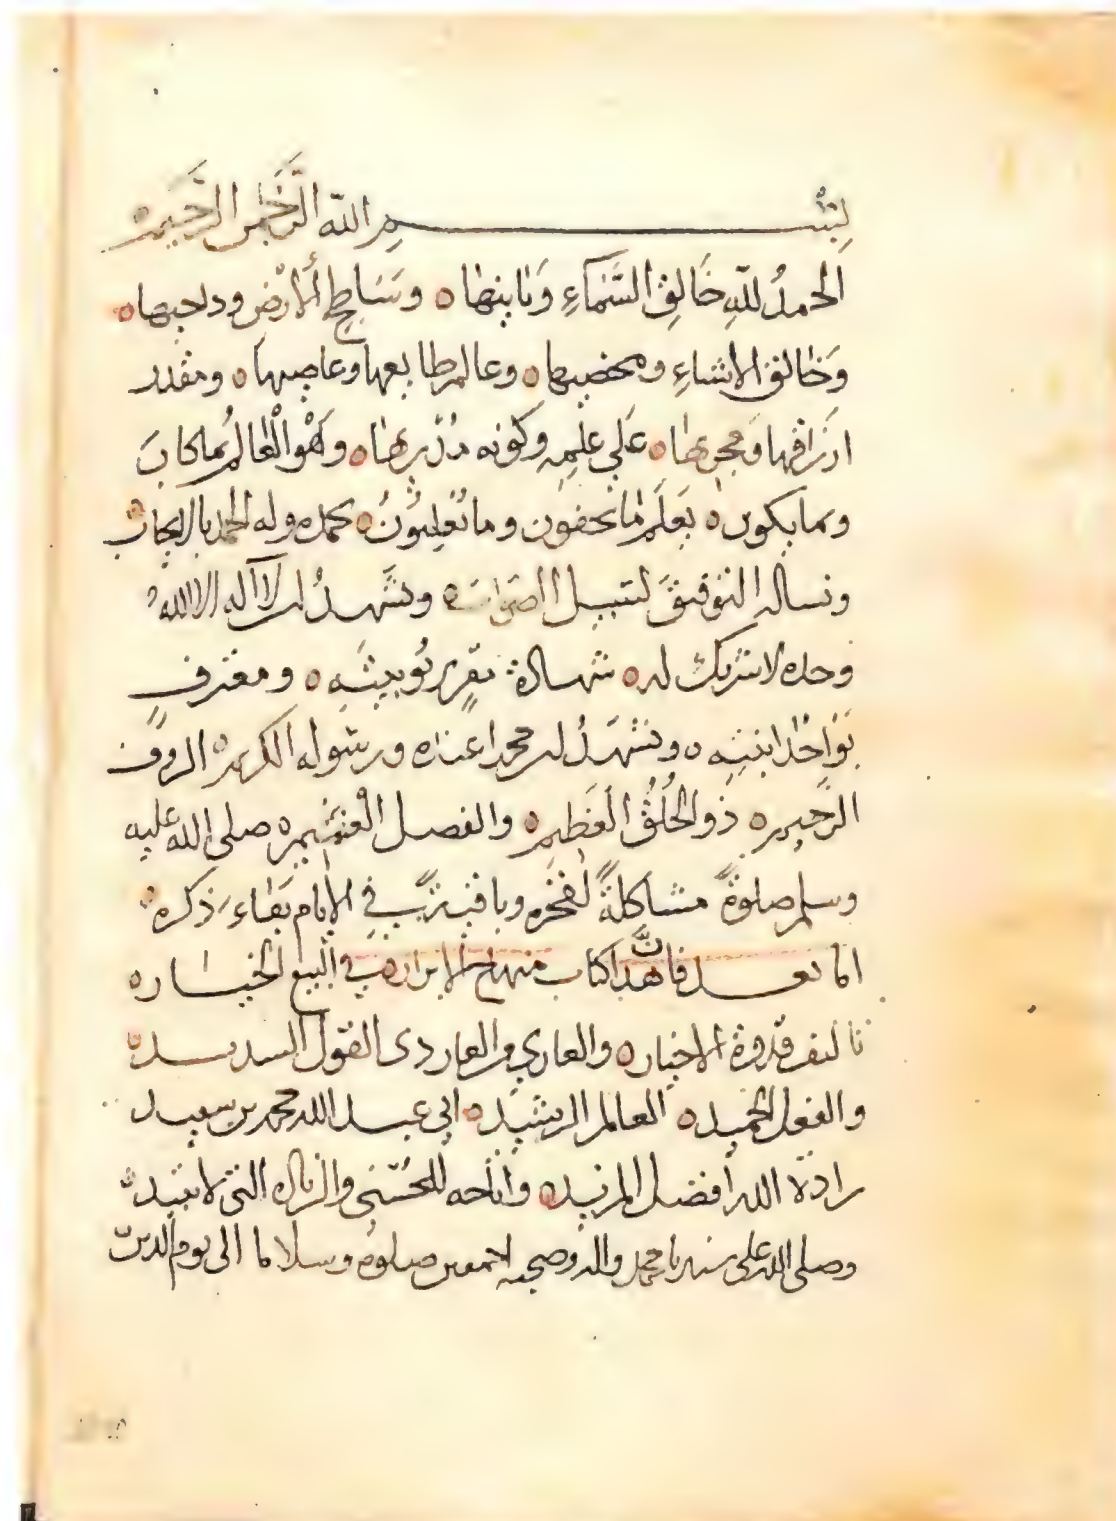 بسم الله الرحمن الرحيم
الحمدُ للّهِ خَالِقِ السَّمَاءِ وَبَانِيهَا ه وسَاطِحِ الأرض وداحيها ه
وَخَالق الاشياءِ ومحصيها ه وعالم طايعها وعاصيها ه ومقدر
ارزاقها ومجريها ه عَلى علمِهِ وكونه مُدَبّرها ه وهْوَ الْعَالمُ بما كانَ
وبما يكون ه يَعلَم ما تخفون وما تُعْلِنُونُ ه نحمده وله الحمد بالايجاب
ونساله التوفيقَ لسبيل الصوَاب ه ونشهدُ ان لا اله الا الله
وحده لا شريك له ه شهادة مقرٍ بربُوبيته ه ومعترفٍ
بوَاحدَانيتِه ه ونشهَدُ ان محمدا عبده ورسوله الكريم ه الروف
الرحيم ه ذو الخُلُقُ الْعَظِيم ه والفصل العَشيم ه صلى الله عليه
وسلم صلوةً مشاكلةً لفخره وباقية في الايام بَقاءَ ذكره ه
اما بعد فانّ هذا كتاب منهاج الابرار ه في البيع الخيار ه
تاليف قدوة الاخيار ه والعاري من العار ذى القول السديد ه
والفعل الحميد ه العالم الرشيد ه ابي عبد الله محمد بن سعيد
زادهُ الله افضل المزيد ه واتاحه للحُسنى والزياده التى لا تبيد ه
وصلى الله على سيدنا محمد واله وصحبه اجمعين صلوةً وسلاما الى يوم الدين